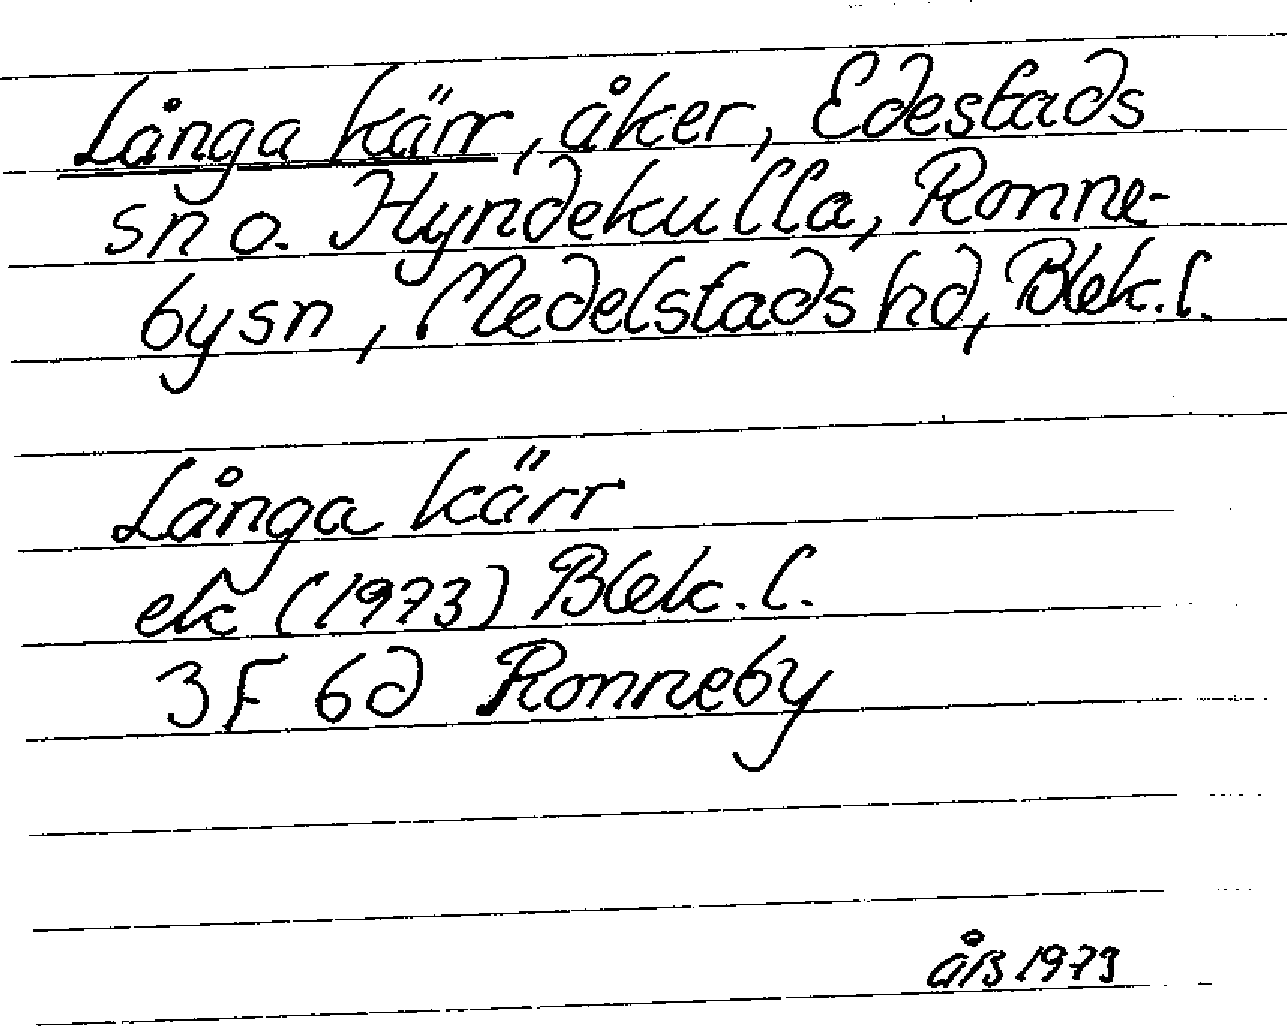 Långa kärr, åker, Edestads
sn o. Hyndekulla, Ronne-
bysn, Medelstads hd, Blek. l.
Långa kärr
ek (1973) Blek. l.
3F 6d Ronneby
åß 1973